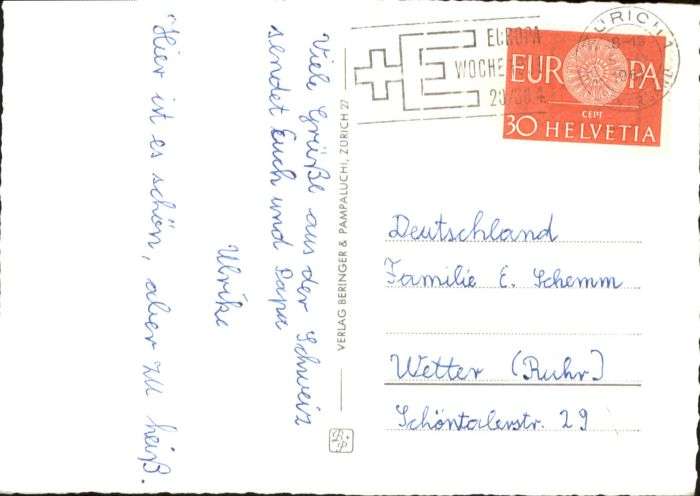 Viele Grüße aus der Schweiz
sendet Euch und Papa
Ulrike
"Hier ist es schön, aber zu heiß.
VERLAG BERINGER & PAMPALUCHI, ZÜRICH 27
EUROPA
WOCHE
ZÜRICH 1
EUROPA
CEPT
30 HELVETIA
Deutschland
Familie E. Schemm
Wetter (Ruhr)
Schöntalerstr. 29